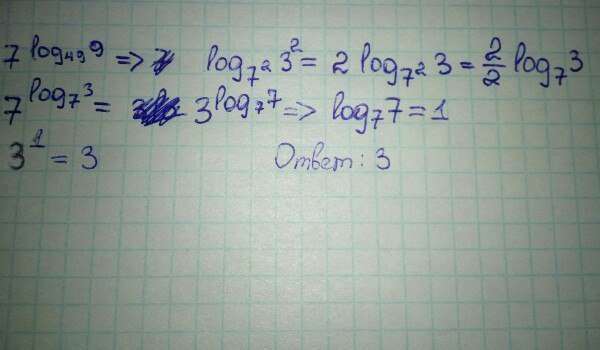 7^log₄₉9 => log₇²3² = 2 log₇²3 = 2/2 log₇3
7^log₇3 = 3^log₇7 => log₇7 = 1
3¹ = 3 Ответ: 3